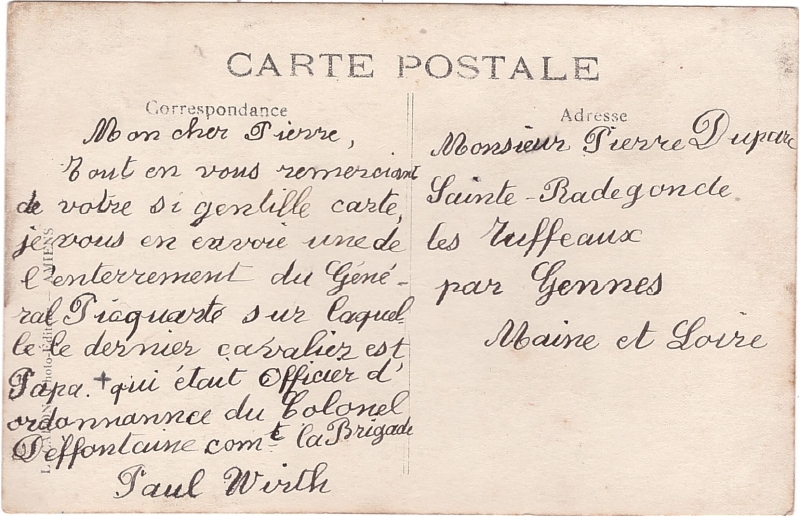 CARTE POSTALE
Correspondance
Mon cher Pierre,
Tout en vous remerciant
de votre si gentille carte,
je vous en envoie une de
l'enterrement du Géné-
ral Picquarts sur laquel-
le le dernier cavalier est
Papa. + qui était Officier d'
ordonnannce du Colonel
Deffontaine comt la Brigade
Paul Wirth
Adresse
Monsieur Pierre Duparc
Sainte-Radegonde
les Tuffeaux
par Gennes
Maine et Loire
L. CARON Photo-Editeur — AMIENS